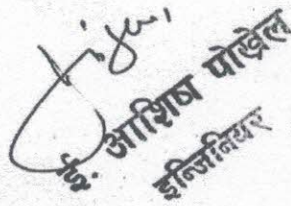 ई. आशिष पोखेल
इन्जिनियर